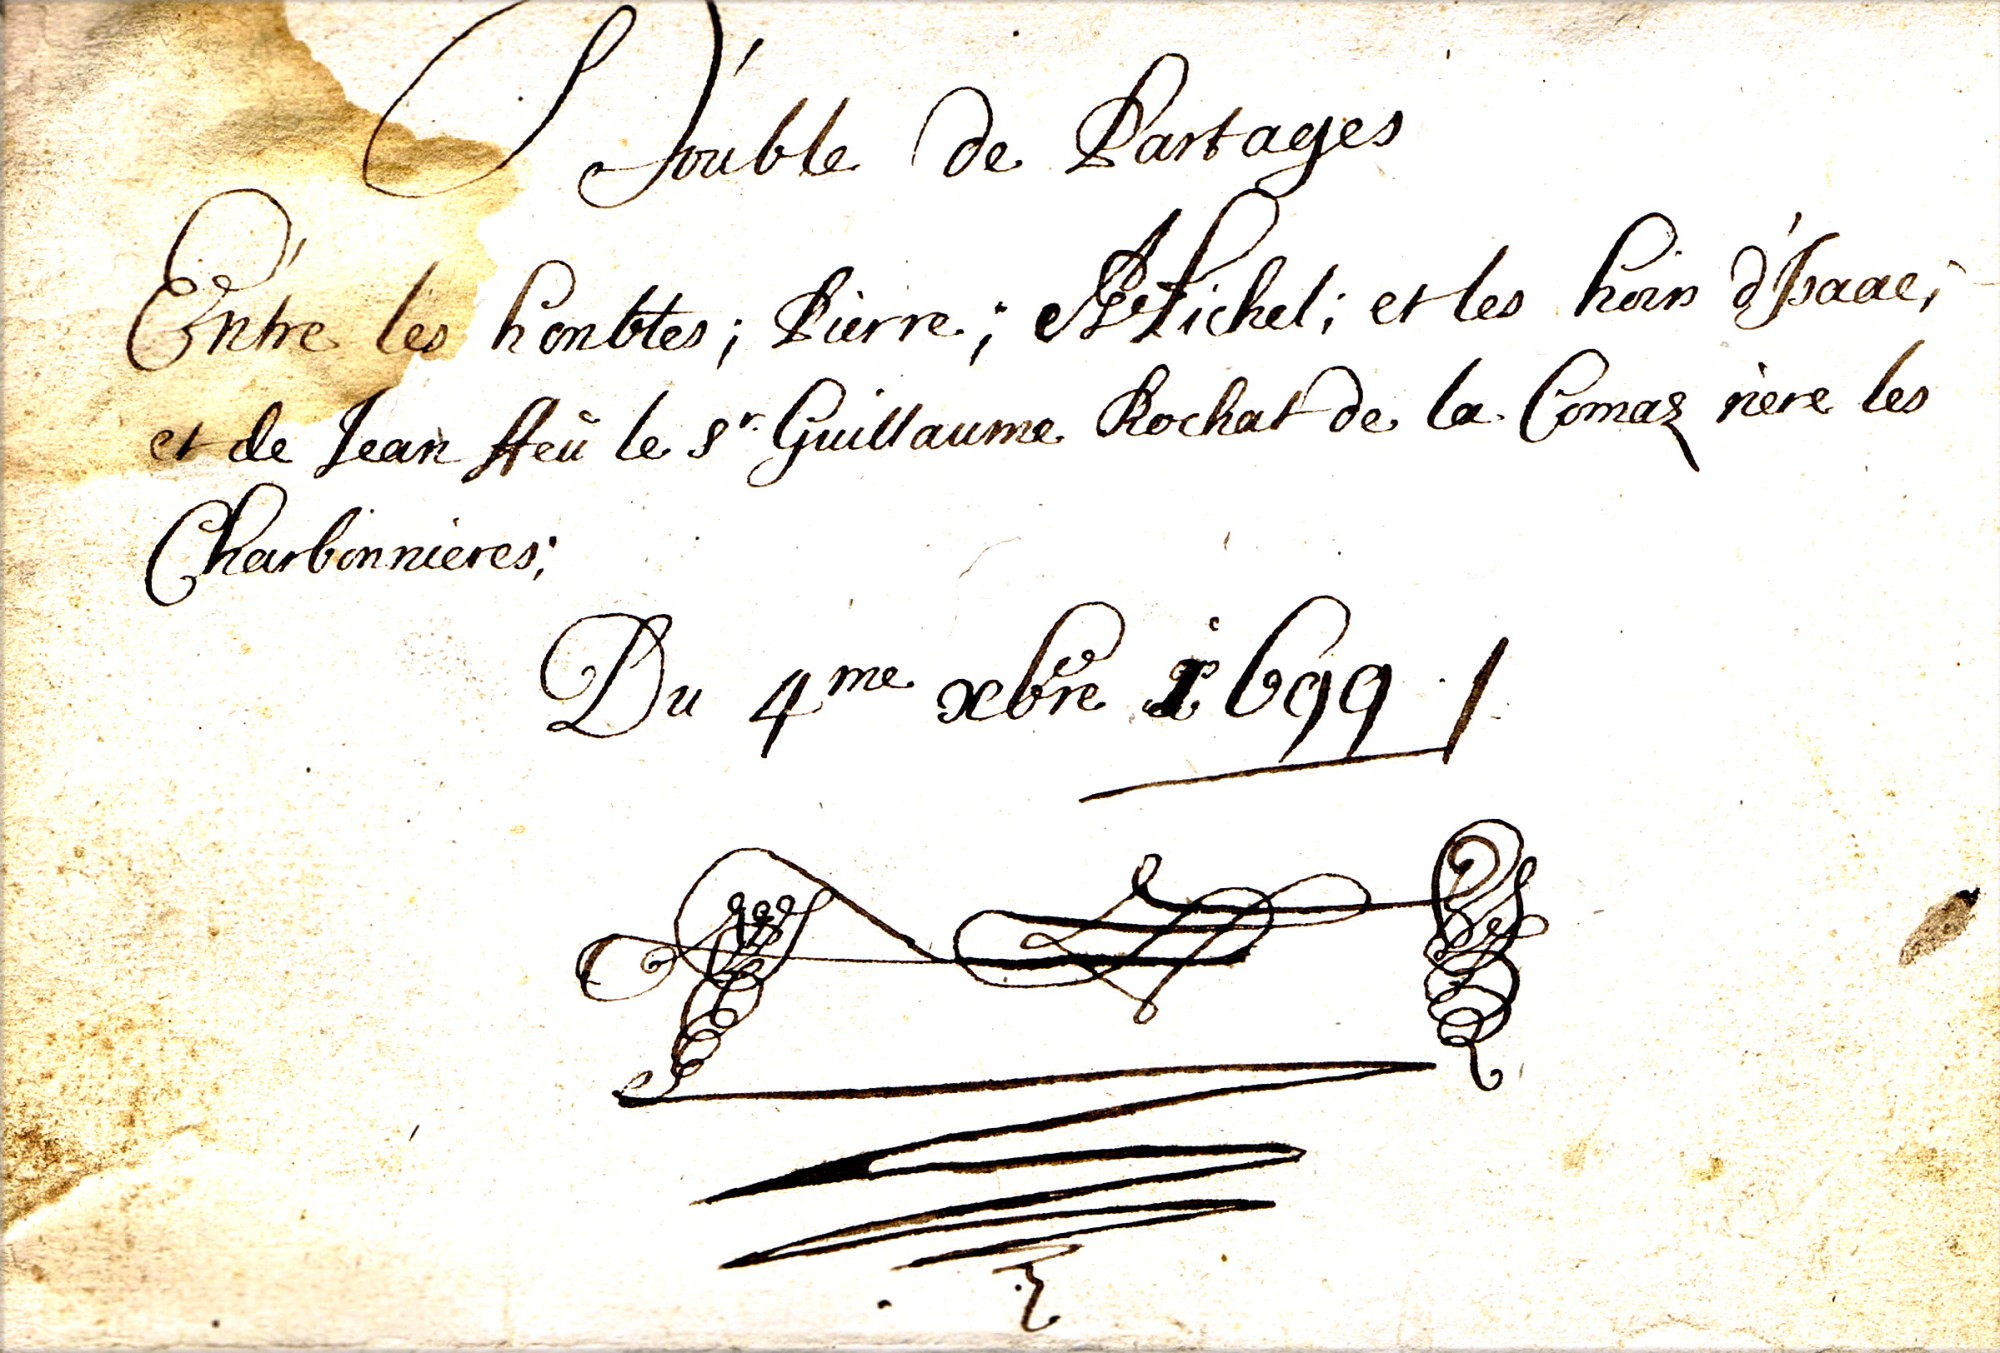 Double de Partages
Entre les honbles; Pierre; Michel; et les hoirs d'Isaac;
et de Jean ffeü le Sr. Guillaume Rochat de la Comaz riere les
Charbonnieres;
Du 4me xbre 1699